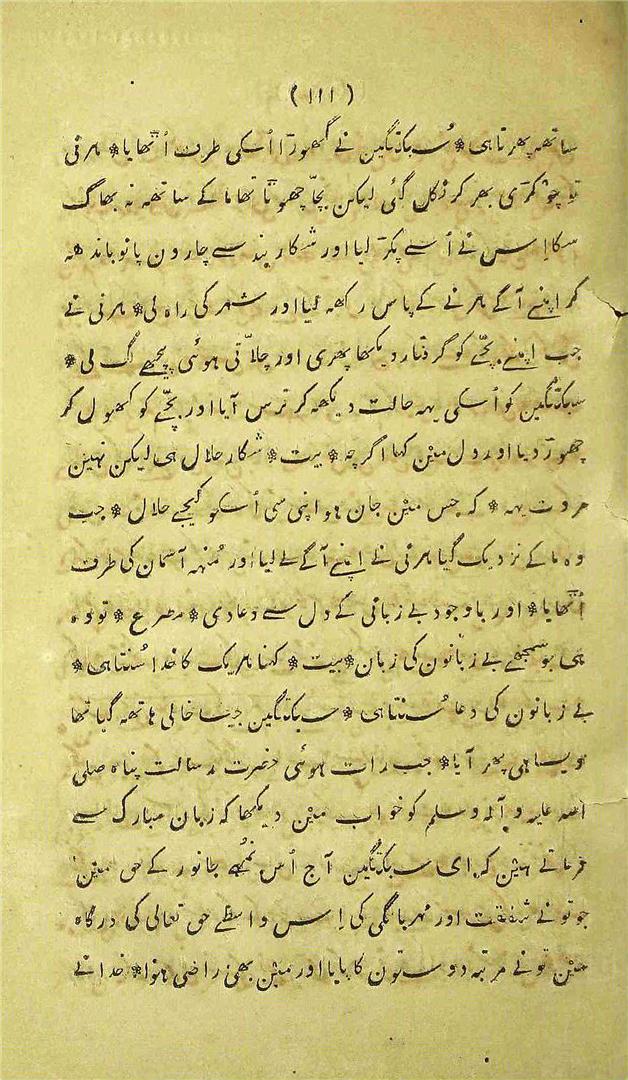 ( ۱۱۱ )
ساتھہ پھرتا ہی * سُبکتگین نے گھوڑا اُسکی طرف اُٹھایا * ہرنی
تو چوکڑی بھر کر نکل گئی لیکن بچّا چھوٹا تھا ما کے ساتھہ نہ بھاگ
سکا اِس نے اُسے پکڑ لیا اور شکار بند سے چارون پانو باندھہ
کر اپنے آگے ہرنے کے پاس رکھہ لیا اور شہر کی راہ لی * ہرنی نے
جب اپنے بچّے کو گرفتار دیکھا پھری اور چلاّتی ہوئی پیچھے لگ لی *
سبکتگین کو اُسکی یہہ حالت دیکھہ کر ترس آیا اور بچّے کو کھول کر
چھوڑ دیا اور دل مین کہا اگرچہ * بیت * شکار حلال ہی لیکن نہین
مروت یہہ * کہ جس مین جان ہو اپنی سی اُسکو کیجے حلال * جب
وہ ما کے نزدیک گیا ہرنی نے اپنے آگے لے لیا اور مُنہہ آسمان کی طرف
اُٹھایا * اور باوجود بے زبانی کے دل سے دعا دی * مصرع * تو وہ
ہی بو سمجھے بے زبانون کی زبان * بیت * کہنا ہریک کا خدا سُنتا ہی *
بے زبانون کی دعا سُنتا ہی * سبکتگین جیسا خالی ہاتھہ گیا تھا
ویسا ہی پھر آیا * جب رات ہوئی حضرت رسالت پناہ صلی
اللہ علیہ و آلہ و سلم کو خواب مین دیکھا کہ زبان مبارک سے
فرماتے ہین کہ ای سبکتگین آج اُس جانور کے حق مین
جو تونے شفقت اور مہربانگی کی اِس واسطے حق تعالی کی درگاہ
مین تونے مرتبہ دوستون کا پایا اور مین بھی راضی ہوا * خدا نے